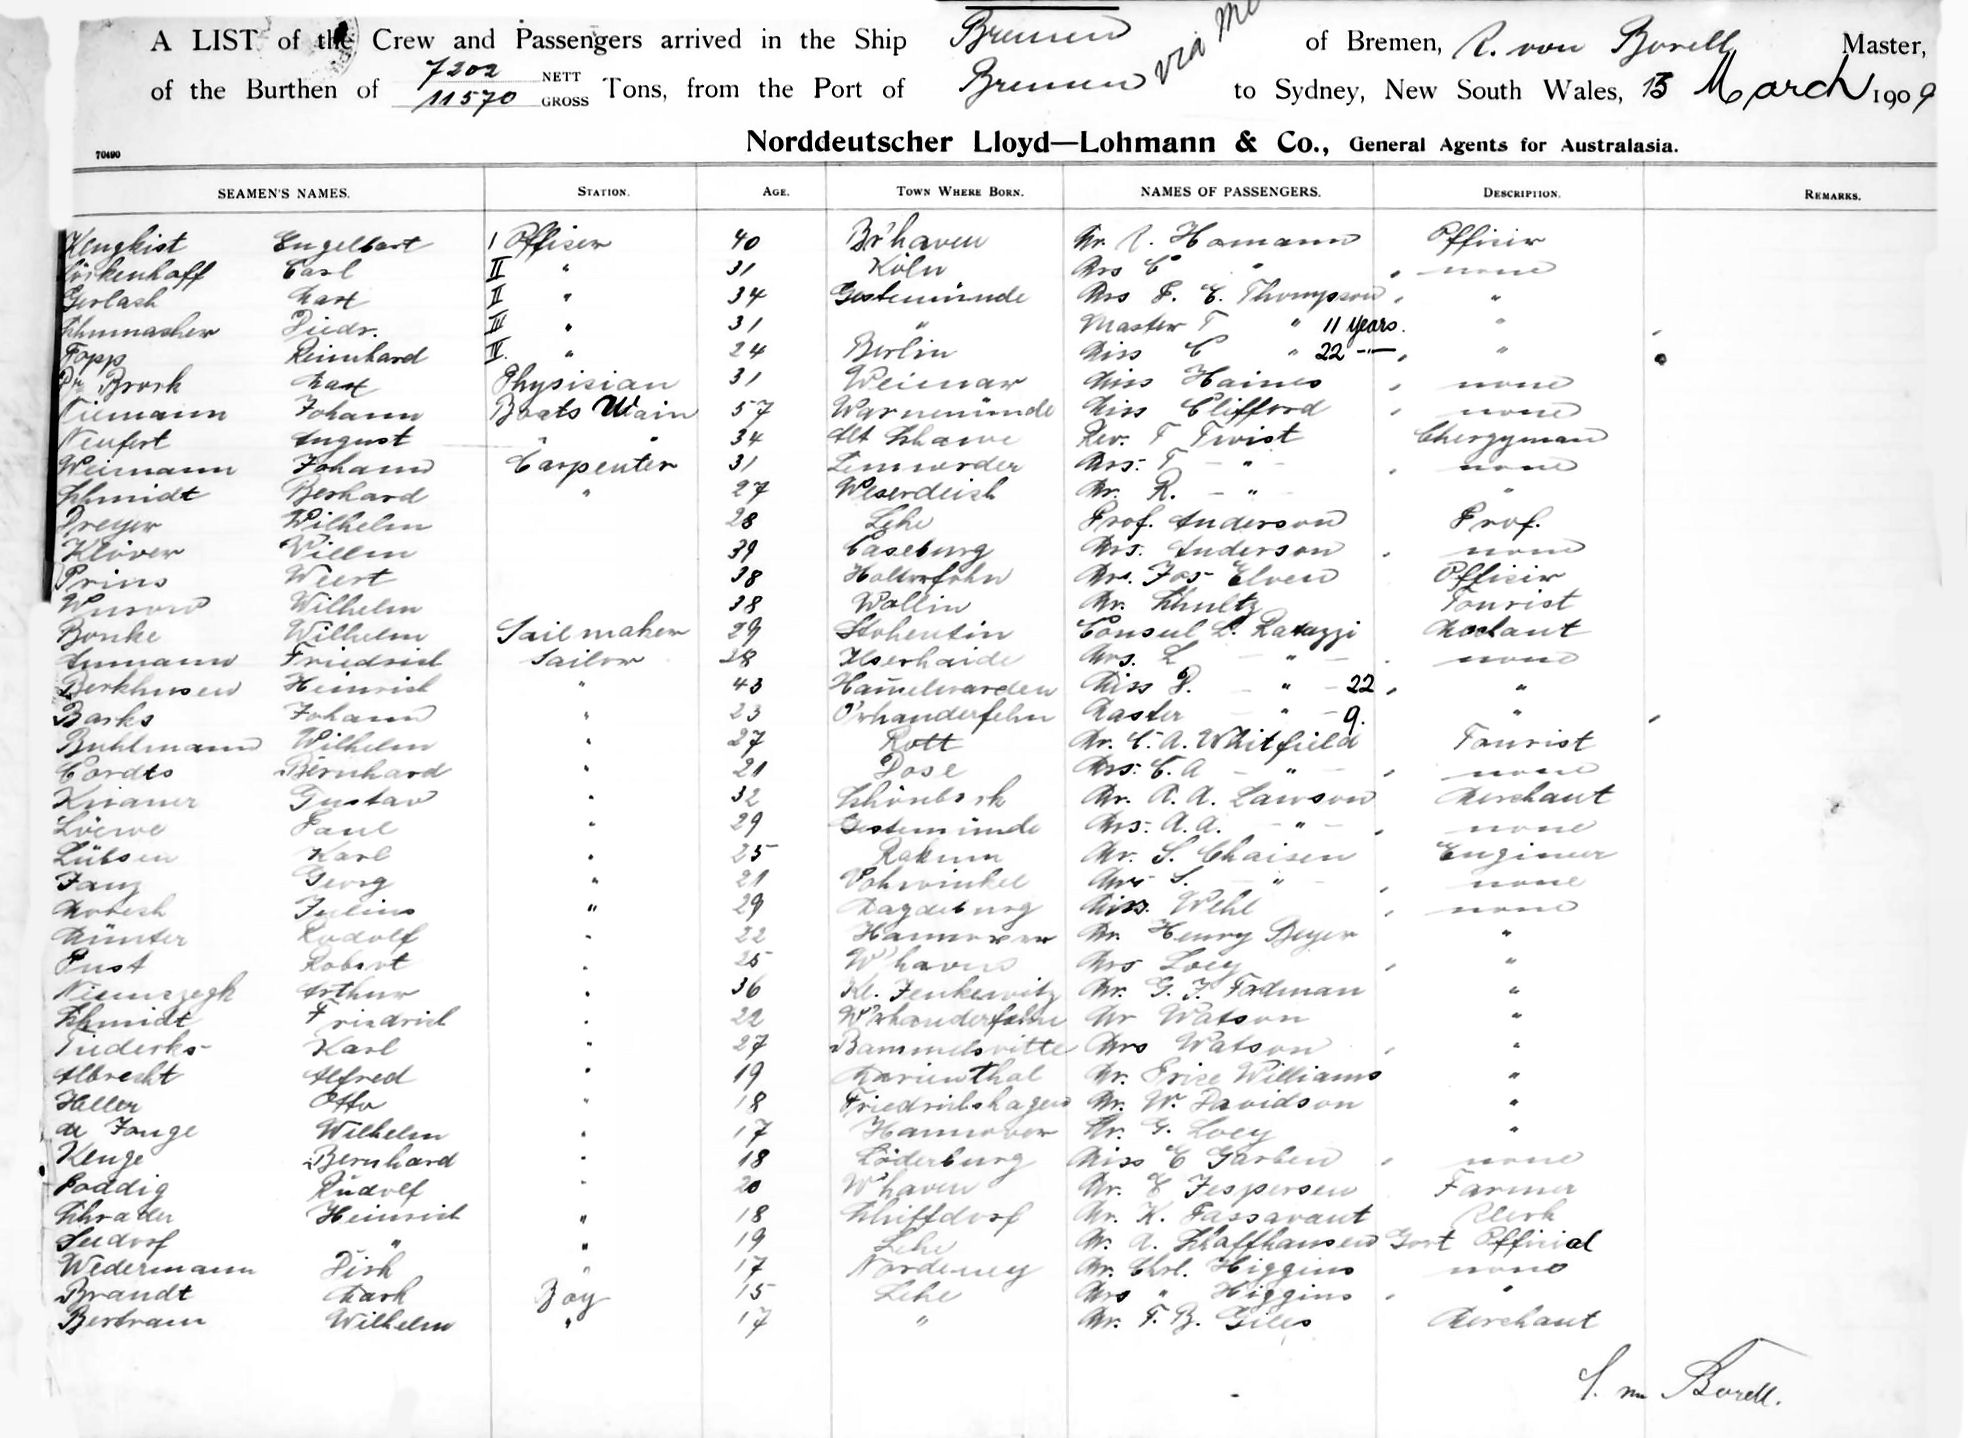 A LIST of the Crew and Passengers arrived in the Ship Bremen via of Bremen, R. von Borell Master,
of the Burthen of 7202 NETT 11570 GROSS Tons, from the Port of Bremen to Sydney, New South Wales, 13 March 1909
Norddeutscher Lloyd—Lohmann & Co., General Agents for Australasia.
70490
SEAMEN'S NAMES. STATION. AGE. TOWN WHERE BORN. NAMES OF PASSENGERS. DESCRIPTION. REMARKS.
Engelbart I Officer 40 Br'haven Mr. R. Homann Officier
Carl II " 31 Köln Mrs C " none
Gerlach Max II " 34 Gestemünde Mrs F. E. Thompson "
Schumacher Diedr. III " 31 " Master T " 11 years. "
Topp Reinhard IV. " 24 Berlin Miss C " 22 — "
Dr. Brock Max Physician 31 Weimar Miss Haines none
Niemann Johann Boats Main 57 Warnemünde Miss Clifford none
Neufert August " " 34 Alt Rev. T Twist Clergyman
Weimann Johann Carpenter 31 Lemwerder Mrs. T — " — none
Schmidt Berhard " 27 Weserdeich Mr. R. — " — "
Dreyer Wilhelm 28 Lehe Prof. Anderson Prof.
Klöver Willm 39 Caseburg Mrs. Anderson none
Prins Weert 38 Holterfehn Jos Elven Officier
Wilhelm 38 Wollin Mr. Schultz Tourist
Bonke Wilhelm Sailmaker 29 Stohentin Consul L. Ratazzi
Ammann Friedrich Sailor 28 Mrs. L — " — none
Berkhusen Heinrich " 43 Hamelwarden Miss P. — " — 22 "
Barks Johann " 23 O'rhanderfehn Master — " — 9. "
Buhlmann Wilhelm " 27 Rott Mr. C. A. Whitfield Tourist
Cordts Bernhard " 21 Dose Mrs. C. A — " — none
Knauer Gustav " 32 Schönbeck Mr. A. A. Lawson Merchant
Loewe Paul " 29 Gestemünde Mrs. A. A. — " — none
Lübsen Karl " 25 Rakum Mr. S. Chaisen Engineer
Janz Georg " 21 Vohwinkel Mrs S. — " — none
Julius " 29 Magdeburg Miss. Wehl none
Münter Rudolf " 22 Hannover Mr. Henry Beyer "
Pust Robert " 25 W'haven Mrs Loey "
Arthur " 36 Kl. Jenkewitz Mr. G. J. Fordman "
Schmidt Friedrich " 22 W'rhanderfehn Mr Watson "
Tiederks Karl " 27 Bammelsvitte Mrs Watson "
Albrecht Alfred " 19 Marienthal Mr. Williams "
Heller Otto " 18 Friedrichshagen Mr. W. Davidson "
de Jonge Wilhelm " 17 Hannover Mr. G. Loey "
Kenge Bernhard " 18 Löderburg Miss E Garben none
Poddig Rudolf " 20 W'haven Mr. E Jespersen Farmer
Schrader Heinrich " 18 Schiffdorf Mr. K. Passavant Clerk
Seedorf " " 19 Lehe Mr. A. Schaffhausen Govt Official
Wedermann Dirk " 17 Norderney Mr. Chrl. Higgins none
Brandt Mark Boy 15 Lehe Mrs " Higgins "
Bertram Wilhelm " 17 " Mr. F. B. Giles Merchant
Borell.